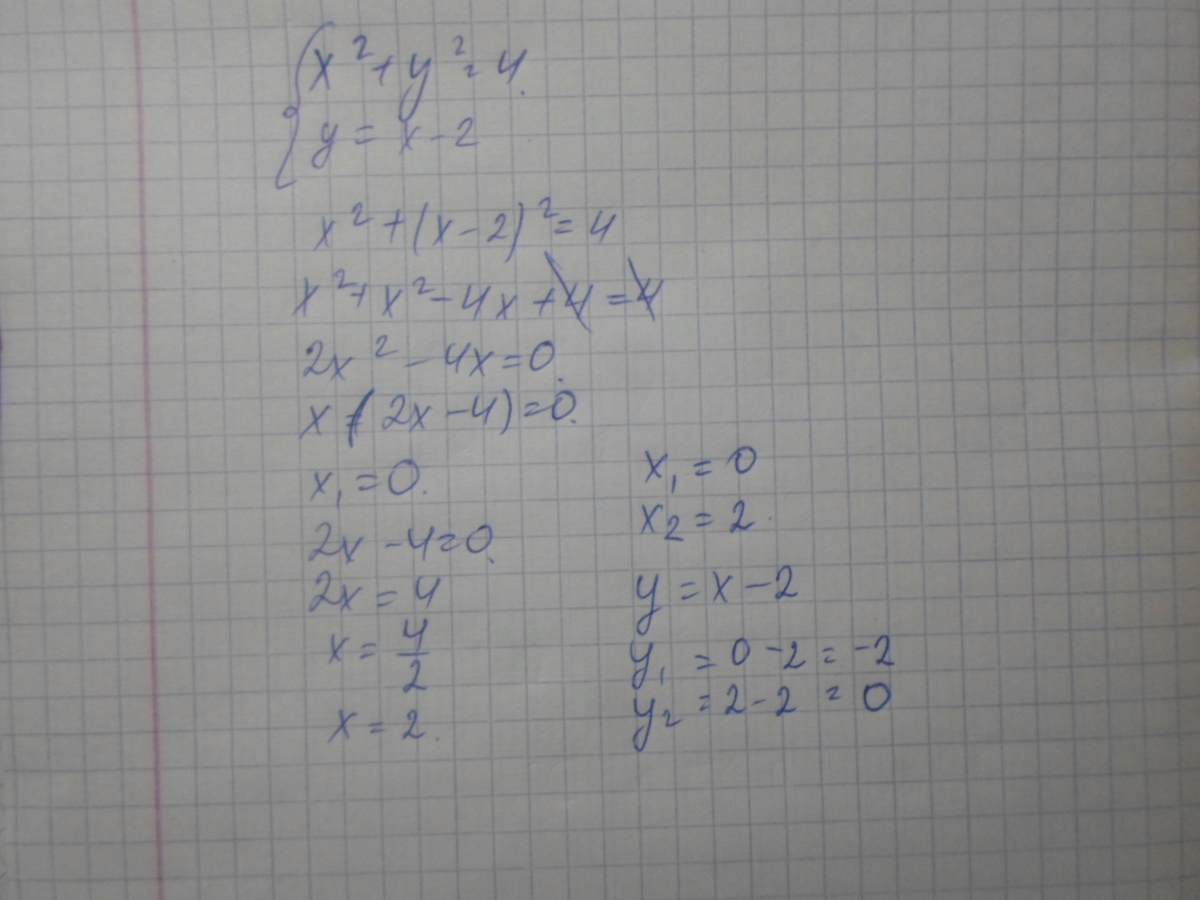 x² + y² = 4.
y = x - 2
x² + (x - 2)² = 4
x² + x² - 4x + 4 = 4
2x² - 4x = 0.
x (2x - 4) = 0.
x₁ = 0.
2x - 4 = 0.
2x = 4
x = 4/2
x = 2.
x₁ = 0
x₂ = 2.
y = x - 2
y₁ = 0 - 2 = -2
y₂ = 2 - 2 = 0